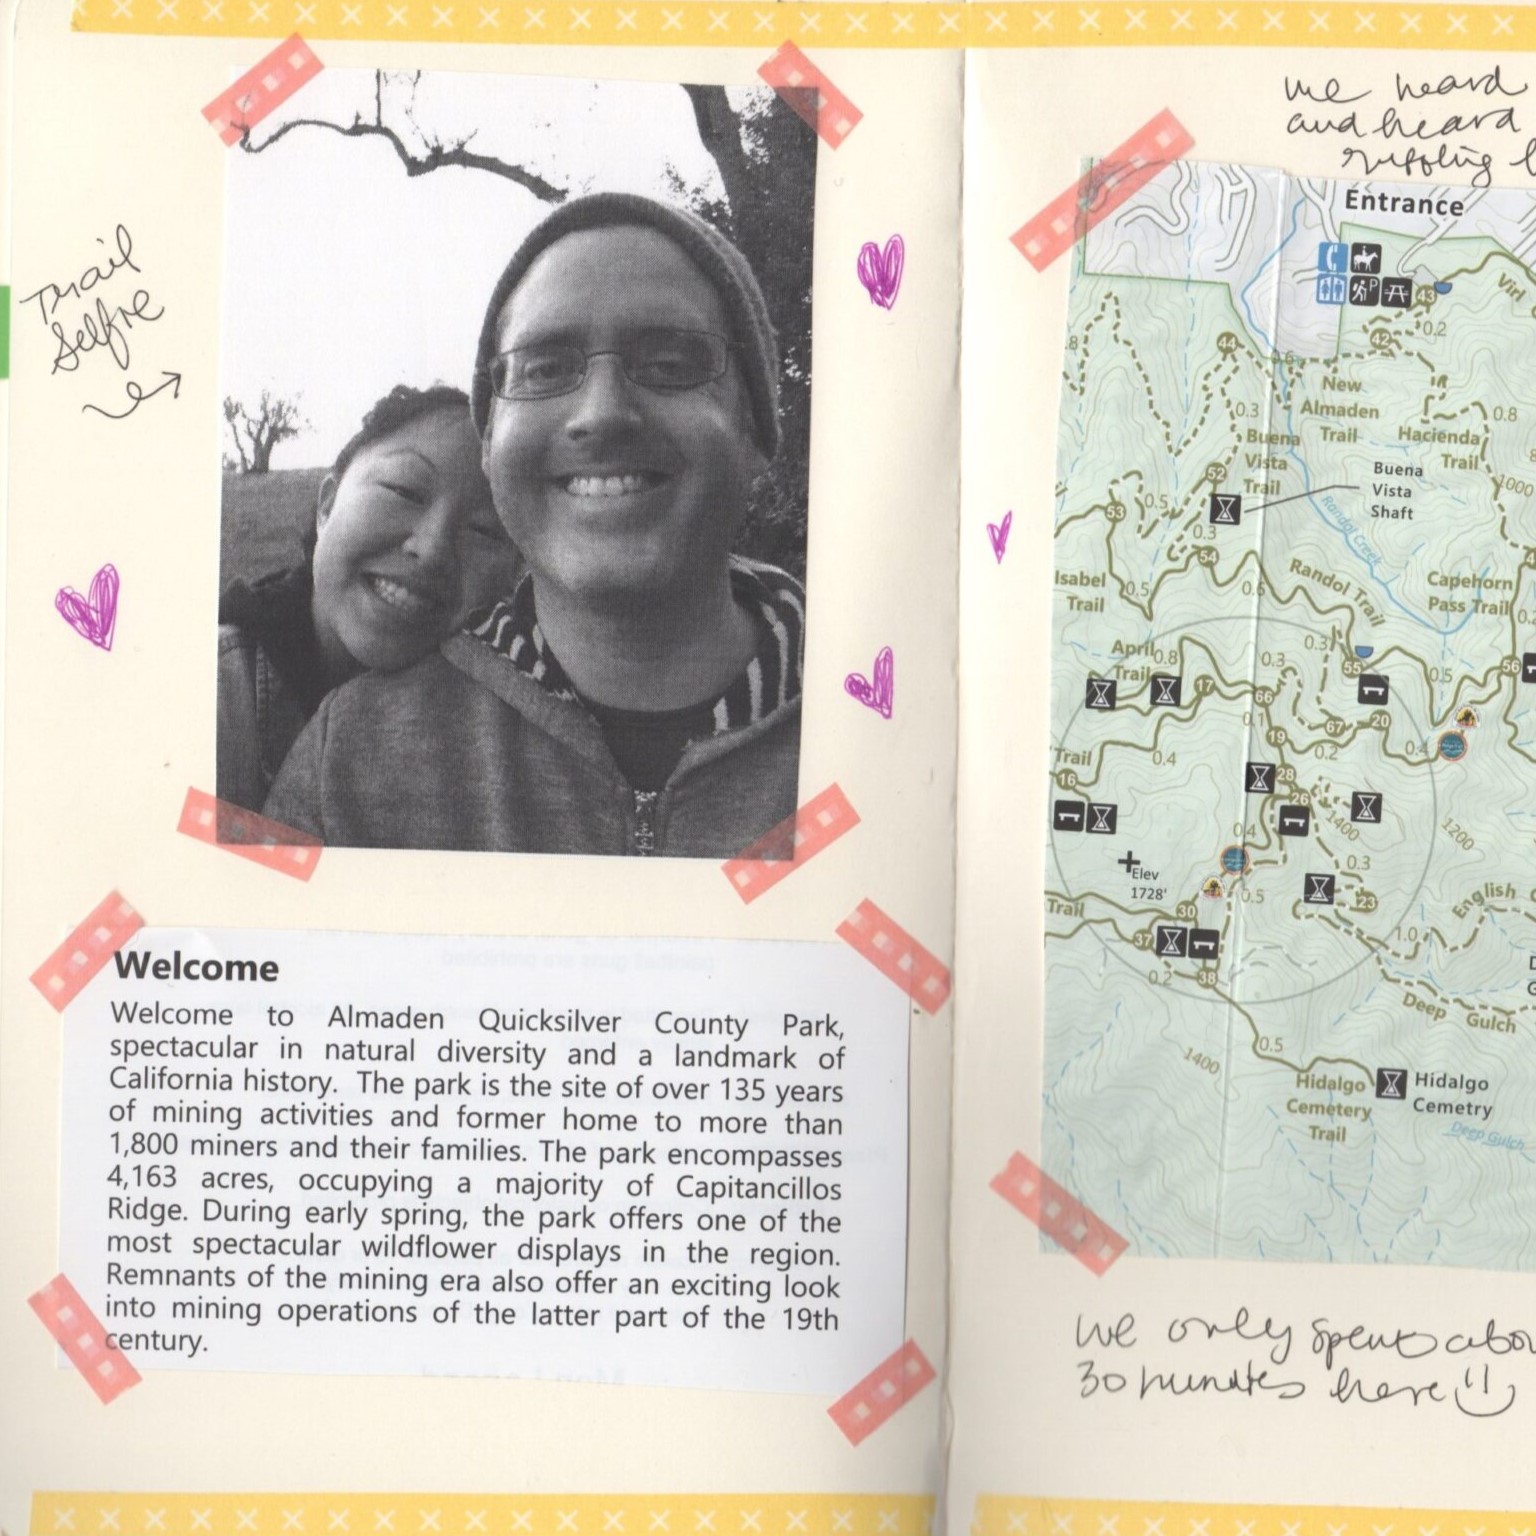 Trail
Selfie
Welcome
Welcome to Almaden Quicksilver County Park,
spectacular in natural diversity and a landmark of
California history. The park is the site of over 135 years
of mining activities and former home to more than
1,800 miners and their families. The park encompasses
4,163 acres, occupying a majority of Capitancillos
Ridge. During early spring, the park offers one of the
most spectacular wildflower displays in the region.
Remnants of the mining era also offer an exciting look
into mining operations of the latter part of the 19th
century.
we heard
and heard
Entrance
P
43
Virl
0.2
42
.8
44
0.6
New
Almaden
Trail
0.3
0.8
Hacienda
Trail
Buena
Vista
Trail
Buena
Vista
Shaft
52
1000
0.5
53
Randol Creek
0.3
54
Isabel
Trail
0.5
0.6
Randol Trail
Capehorn
Pass Trail
0.2
April
Trail
0.8
0.3
0.3
55
0.5
56
17
66
0.1
67
20
19
0.2
0.4
Trail
0.4
16
28
26
1400
1200
0.4
Elev
1728'
0.3
0.5
23
English
Trail
30
37
1.0
0.2
38
Deep Gulch
0.5
1400
Hidalgo
Cemetery
Trail
Hidalgo
Cemetry
Deep Gulch
we only spent abou
30 minutes here